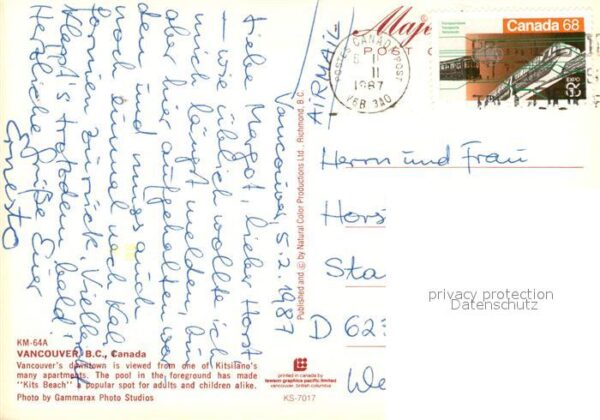 Vancouver, 5.2.1987
Liebe Margot, lieber Horst
– wie üblich wollte ich
mich längst melden, bin
aber hier aufgehalten wor-
den und muss auch
noch einmal nach Kali-
fornien zurück. Vielleicht
klappt's trotzdem bald!
Herzliche Grüße Euer
Ernesto
AIRMAIL
Majes
POST C
POSTES CANADA POST
II
11
1987
V6B 3A0
Canada 68
EXPO
86
Herrn und Frau
Hors
Sta
D 623
We
privacy protection
Datenschutz
Published and © by Natural Color Productions Ltd., Richmond, B.C.
KM-64A
VANCOUVER, B.C., Canada
Vancouver's downtown is viewed from one of Kitsilano's
many apartments. The pool in the foreground has made
"Kits Beach" a popular spot for adults and children alike.
Photo by Gammarax Photo Studios
printed in canada by
lawson graphics pacific limited
vancouver, british columbia
KS-7017